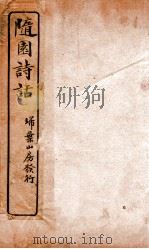 隨園詩話
掃葉山房發行